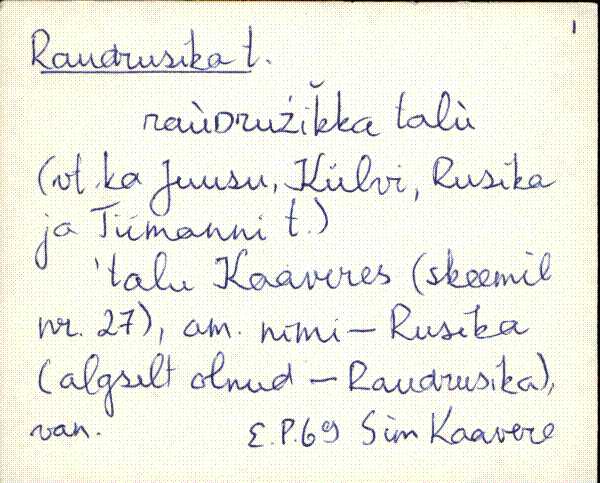 1
Raudrusika t.
raùDružĭkka talù
(vt. ka Juusu, Külvi, Rusika
ja Tiimanni t.)
'talu Kaaveres (skeemil
nr. 27), am. nimi – Rusika
(algselt olnud – Raudrusika),
van. E.P.69 Sim Kaavere